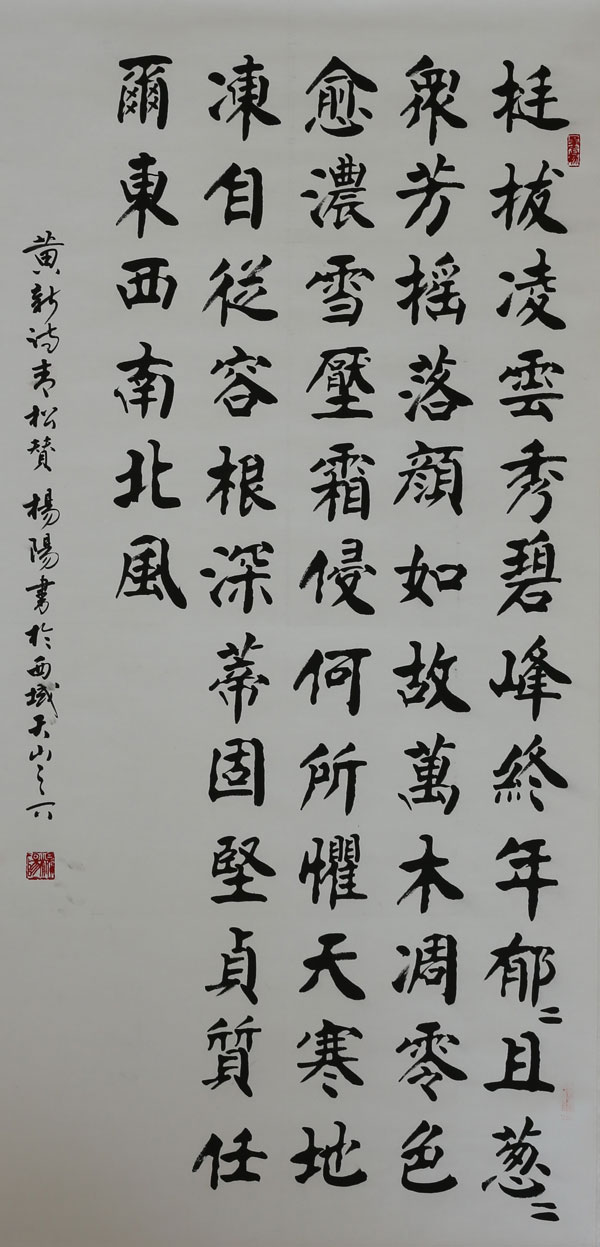 挺拔凌雲秀碧峰終年郁〻且葱〻
衆芳摇落顔如故萬木凋零色
愈濃雪壓霜侵何所懼天寒地
凍自從容根深蒂固堅貞質任
爾東西南北風
黄新詩青松贊 楊陽書於西域天山之下